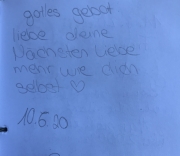 gottes gebot
liebe deine
Nächsten liebe
mehr wie dich
selbst ♡
10.6.20